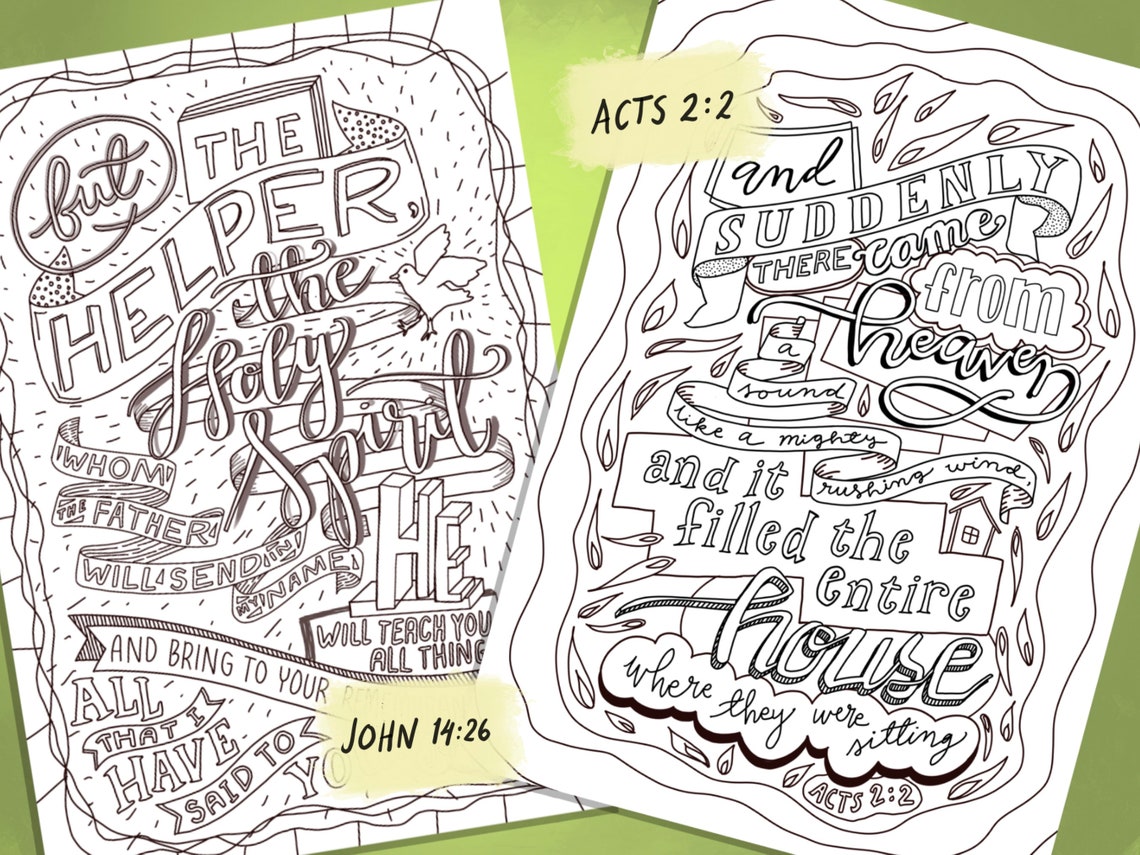 but
THE
HELPER,
the
Holy
Spirit
WHOM
THE FATHER
WILL SEND IN
MY NAME
HE
WILL TEACH YOU
ALL THING
AND BRING TO YOUR
ALL
THAT I
HAVE
SAID TO
YO
JOHN 14:26
ACTS 2:2
and
SUDDENLY
THERE came
from
heaven
a
sound
like a mighty
rushing wind
and it
filled the
entire
house
where they were
sitting
ACTS 2:2